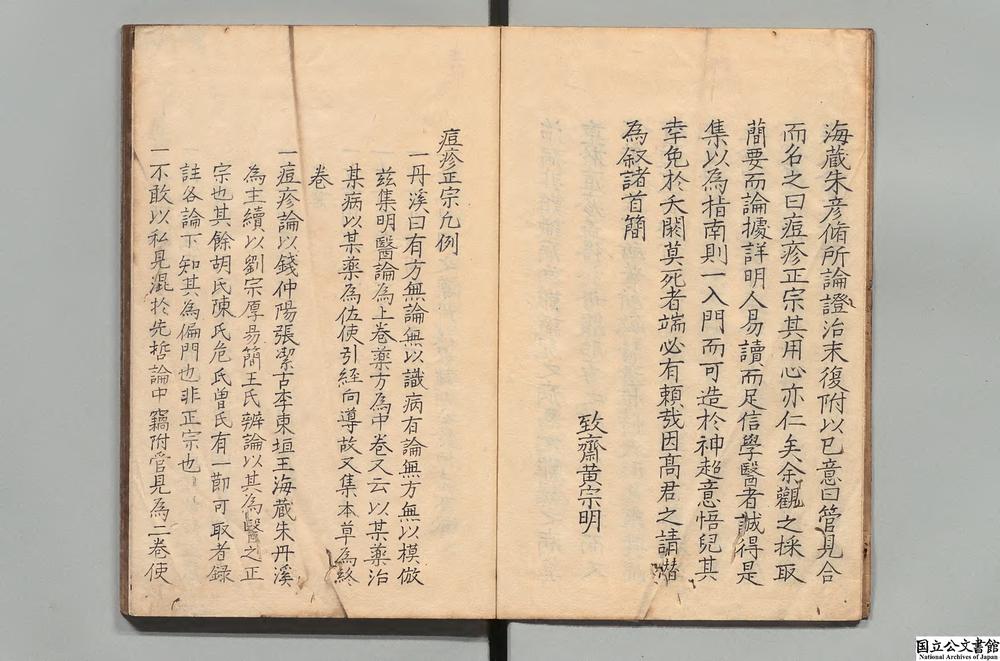 海蔵朱彦脩所論證治末復附以已意曰管見合
而名之曰痘疹正宗其用心亦仁矣余觀之採取
蕳要而論據詳明人易讀而足信學醫者誠得是
集以為指南則一入門而可造於神超意悟兒其
幸免於夭閼莫死者端必有頼哉因髙君之請僣
為叙諸首簡
致齋黄宗明
痘疹正宗凡例
一丹溪曰有方無論無以識病有論無方無以模倣
兹集明醫論為上卷藥方為中卷又云以某藥治
某病以某藥為佐使引経向導故又集本草為終
卷
一痘疹論以錢仲陽張潔古李東垣王海蔵朱丹溪
為主續以劉宗厚易簡王氏辨論以其為醫之正
宗也其餘胡氏陳氏危氏曽氏有一節可取者録
註各論下知其為偏門也非正宗也
一不敢以私見混於先哲論中竊附管見為二卷使
国立公文書館
National Archives of Japan